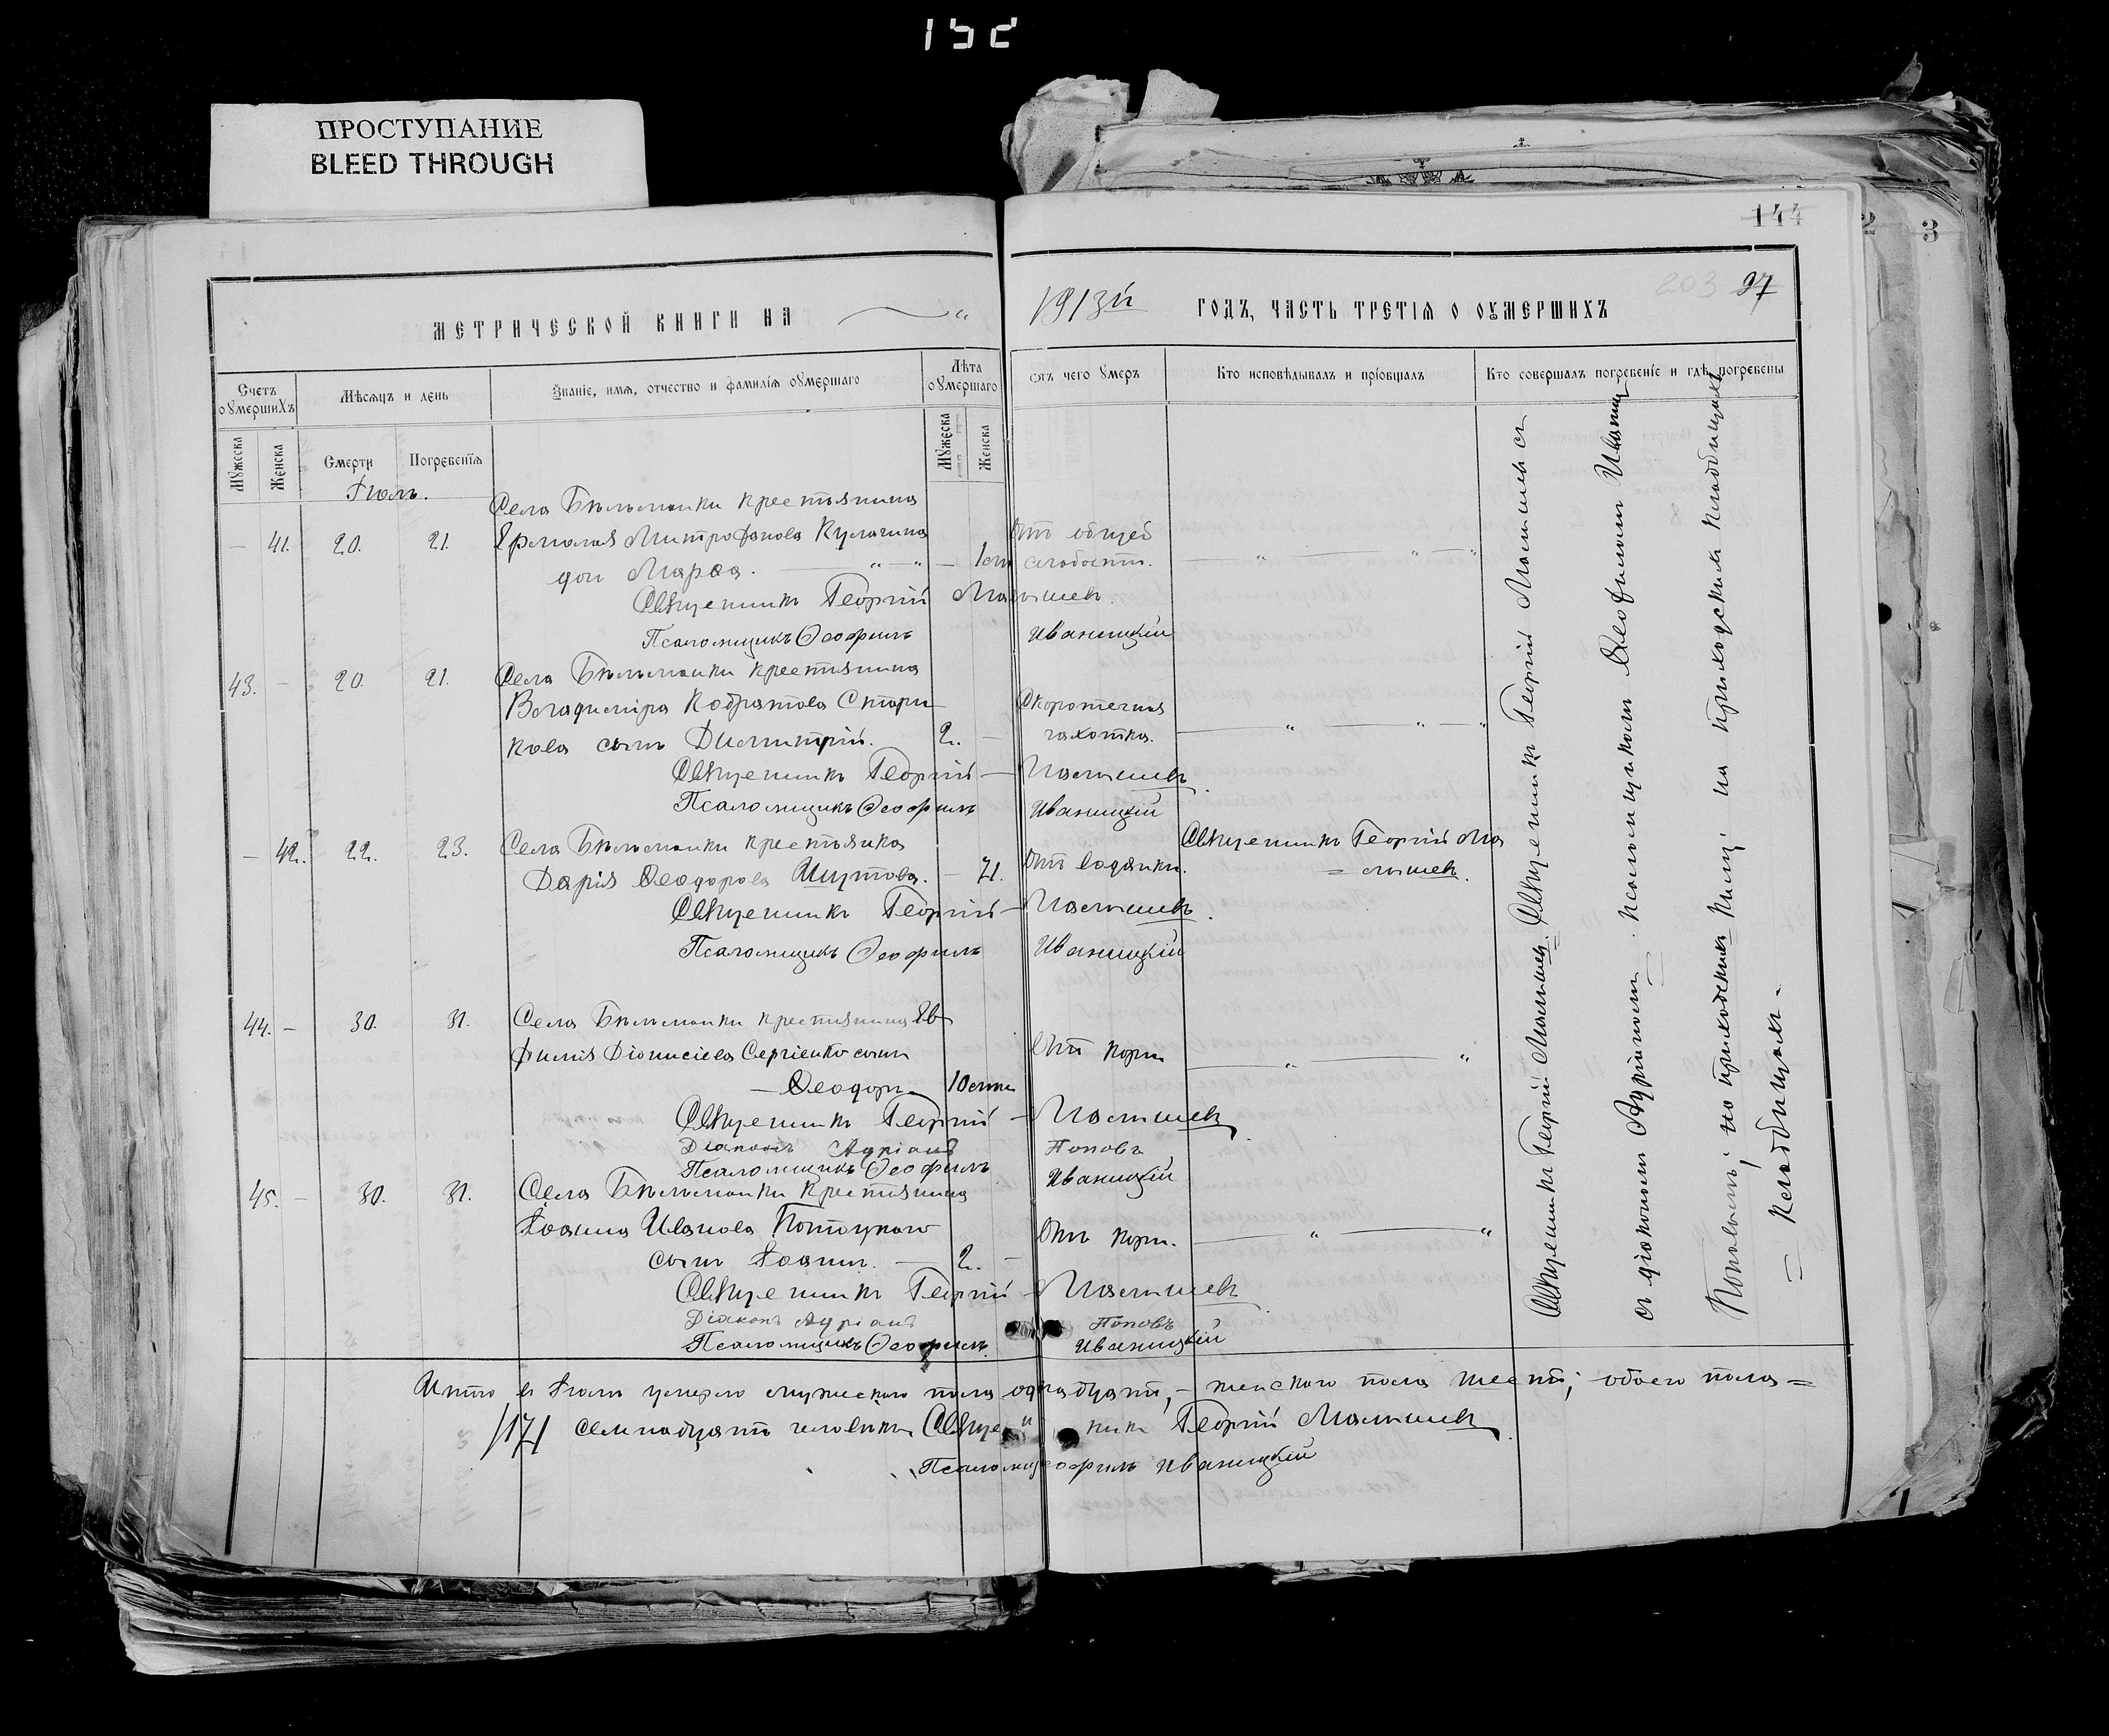 152
ПРОСТУПАНИЕ
BLEED THROUGH
144
2
3
203 97
МЕТРИЧЕСКОЙ КНИГИ НА
1913й ГОДЪ, ЧАСТЬ ТРЕТІѦ О ОУМЕРШИХЪ
Счетъ оумершихъ
Мѣсяцъ и день
Званіе, имя, отчество и фамилія оумершаго
Лѣта оумершаго
Отъ чего умеръ
Кто исповѣдывалъ и пріобщалъ
Кто совершалъ погребеніе и гдѣ погребены
Мужеска
Женска
Смерти
Погребенія
Мужеска
Женска
Іюль.
Села Бѣльманки крестьянина
— 41. 20. 21. Ермолая Митрофанова Кулагина Отъ общей
дочь Марѳа. — слабости.
Священникъ Георгій Малышевъ.
Псаломщикъ Ѳеофилъ Иваницкій
43. — 20. 21. Села Бѣльманки крестьянина
Владиміра Кодратова Стари- Скоротечная
кова сынъ Димитрій. 2. — чахотка.
Священникъ Георгій Малышевъ.
Псаломщикъ Ѳеофилъ Иваницкій
— 42. 22. 23. Села Бѣльманки крестьянка Священникъ Георгій Ма
Дарія Ѳеодорова Шутова. — 71. Отъ водянки. = лышевъ.
Священникъ Георгій Малышевъ.
Псаломщикъ Ѳеофилъ Иваницкій
44. — 30. 31. Села Бѣльманки крестьянина Ев
фимія Діонисіева Сергіенко сынъ Отъ кори
— Ѳеодоръ 10
Священникъ Георгій Малышевъ.
Діаконъ Адріанъ Поповъ
Псаломщикъ Ѳеофилъ Иваницкій
45. — 30. 31. Села Бѣльманки крестьянина
Іоанна Иванова Потоцкаго Отъ кори.
сынъ Іоаннъ. — 2. —
Священникъ Георгій Малышевъ.
Діаконъ Адріанъ Поповъ
Псаломщикъ Ѳеофилъ Иваницкій
Священникъ Георгій Малышевъ. Священникъ Георгій Малышевъ съ
съ діакономъ Адріаномъ псаломщикомъ Ѳеофиломъ Иваниц
Поповымъ; на приходскомъ кимъ на приходскомъ кладбищахъ
= кладбищахъ.
Итого въ Іюлѣ умерло мужескаго пола одинадцать, — женскаго пола шесть; обоего пола =
/17/ семнадцать человѣкъ. Священникъ Георгій Малышевъ.
Псаломщ Ѳеофилъ Иваницкій